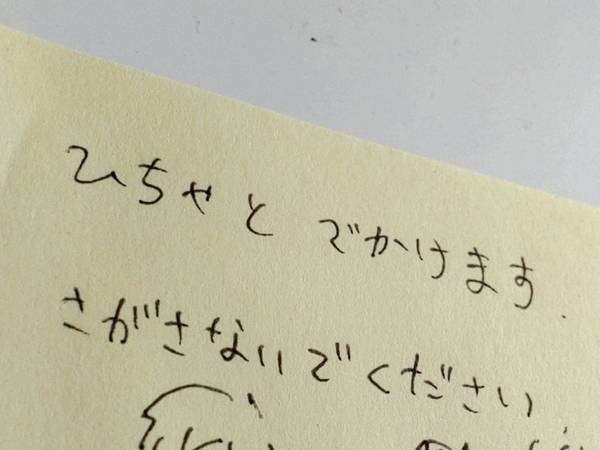 ひちゃと でかけます.
さがさないでください